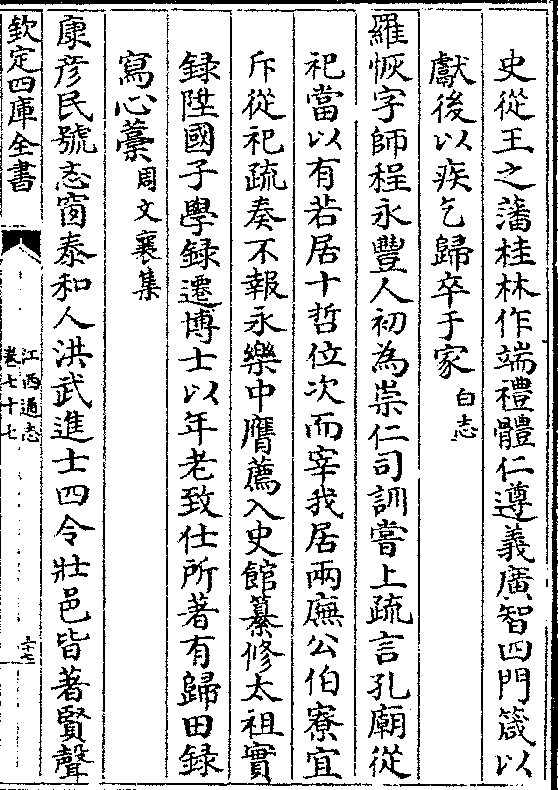 史從王之藩桂林作端禮體仁遵義廣智四門箴以
獻後以疾乞歸卒于家白志
羅恢字師程永豐人初為崇仁司訓嘗上疏言孔廟從
祀當以有若居十哲位次而宰我居兩廡公伯寮宜
斥從祀疏奏不報永樂中膺薦入史館纂修太祖實
録陞國子學録遷博士以年老致仕所著有歸田録
寫心藁周文襄集
康彦民號志窗泰和人洪武進士四令壯邑皆著賢聲
欽定四庫全書
江西通志
卷七十七